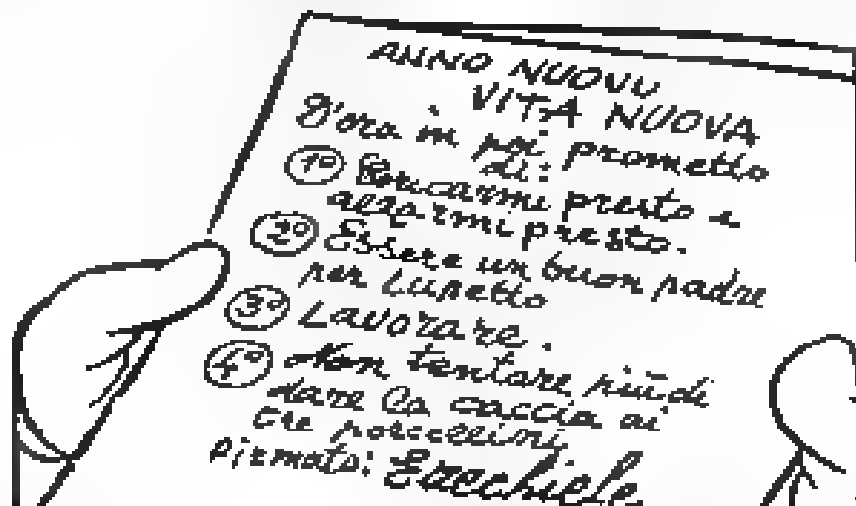 ANNO NUOVO
VITA NUOVA
D'ora in poi prometto
di:
1º Coricarmi presto e
alzarmi presto.
2º Essere un buon padre
per Lupetto
3º Lavorare.
4º Non tentare più di
dare la caccia ai
tre porcellini
Firmato: Ezechiele